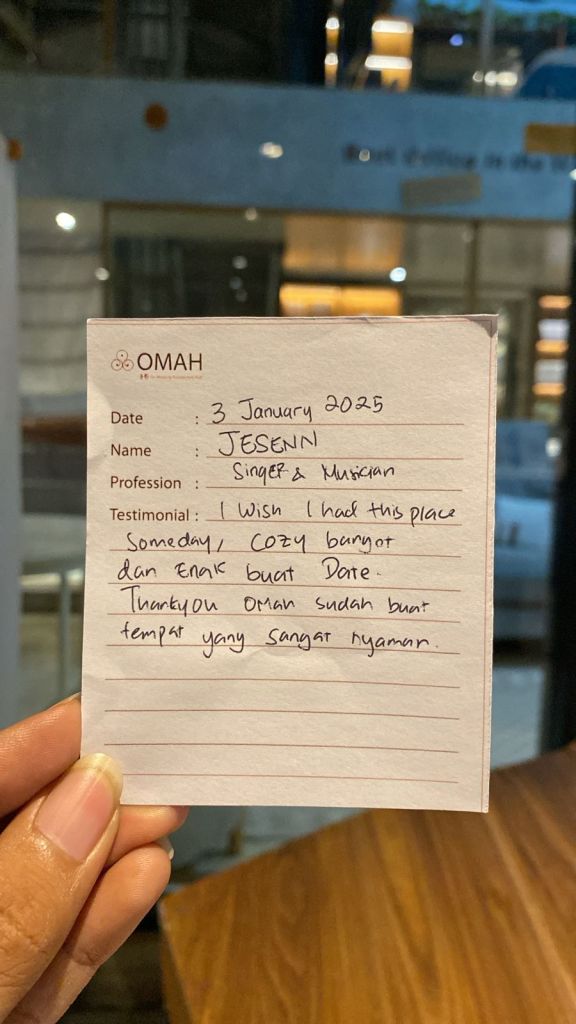 OMAH
Date : 3 January 2025
Name : JESENN
Profession : Singer & Musician
Testimonial : I Wish I had this place
Someday, Cozy bangot
dan Enak buat Date.
Thankyou OMah sudah buat
tempat yang sangat nyaman.